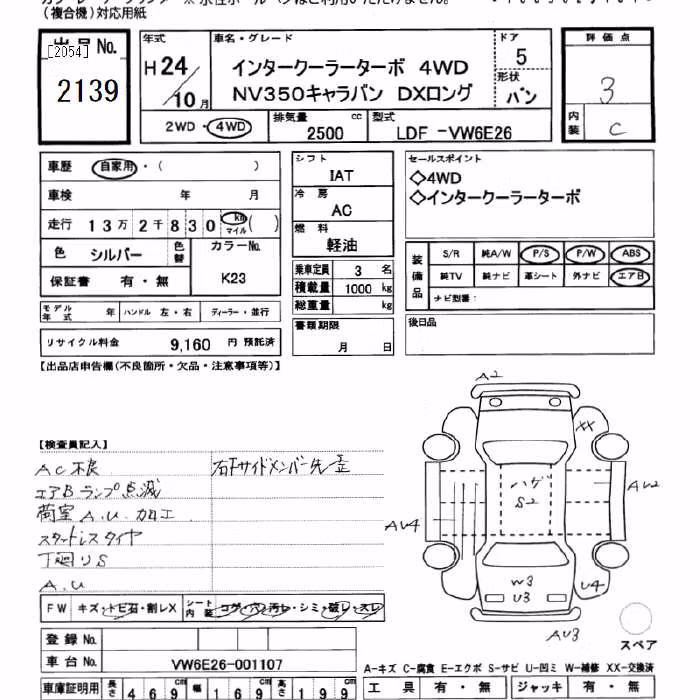 (複合機)対応用紙
出品No.
[2054]
2139
年式
H24/10月
車名・グレード
インタークーラーターボ 4WD
NV350キャラバン DXロング
ドア
5
形状
バン
評価点
3
内装
C
2WD・4WD
排気量
2500 cc
型式
LDF -VW6E26
車歴 自家用・( )
車検 年 月
走行 13万2千830 km マイル ( )
色 シルバー
色替
カラーNo.
K23
保証書 有・無
シフト
IAT
冷房
AC
燃料
軽油
乗車定員 3 名
積載量 1000 kg
総重量 kg
書類期限
月 日
セールスポイント
◇4WD
◇インタークーラーターボ
装備品
S/R 純A/W P/S P/W ABS
純TV 純ナビ 革シート 外ナビ エアB
ナビ型番:
後日品
モデル年式 年 ハンドル 左・右 ディーラー・並行
リサイクル料金 9,160 円 預託済
【出品店申告欄(不良箇所・欠品・注意事項等)】
【検査員記入】
AC不良
エアBランプ点滅
荷室 A.U. 加工
スタットレスタイヤ
下廻りS
A.U
右Fサイドメンバー先歪
A2
XX
ハゲ
S2
AU2
AU4
W3
U3
U4
AU3
スペア
FW キズ・トビ石・割レX シート内装 コゲ・穴・汚レ・シミ・破レ・スレ
登録No.
車台No. VW6E26-001107
A-キズ C-腐食 E-エクボ S-サビ U-凹ミ W-補修 XX-交換済
車庫証明用 長さ 469 cm 幅 169 cm 高さ 199 cm
工具 有・無 ジャッキ 有・無